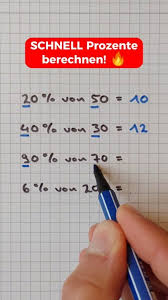 SCHNELL Prozente
berechnen! 🔥
20 % von 50 = 10
40 % von 30 = 12
90 % von 70 =
6 % von 20